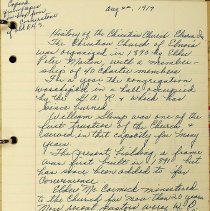 Aug 22, 1919
History of the Christian Church Elnora Ind
The Christian Church of Elnora
was organized in 1893 by Elder
Peter Martin, with a member-
ship of 40 Charter members
For a year the congregation
worshiped in a hall occupied
by the G.A.R. & which has
since burned
William Stamp was one of the
first Trustees of the Church &
served in that capacity for many
years
The present building, a frame
was first built in 1894 but
has since been added to for
convenience
Elder McCormick ministered
to the Church for more than 20 years